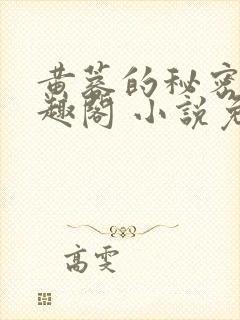 黄蓉的秘密
趣閣 小說免
高雯